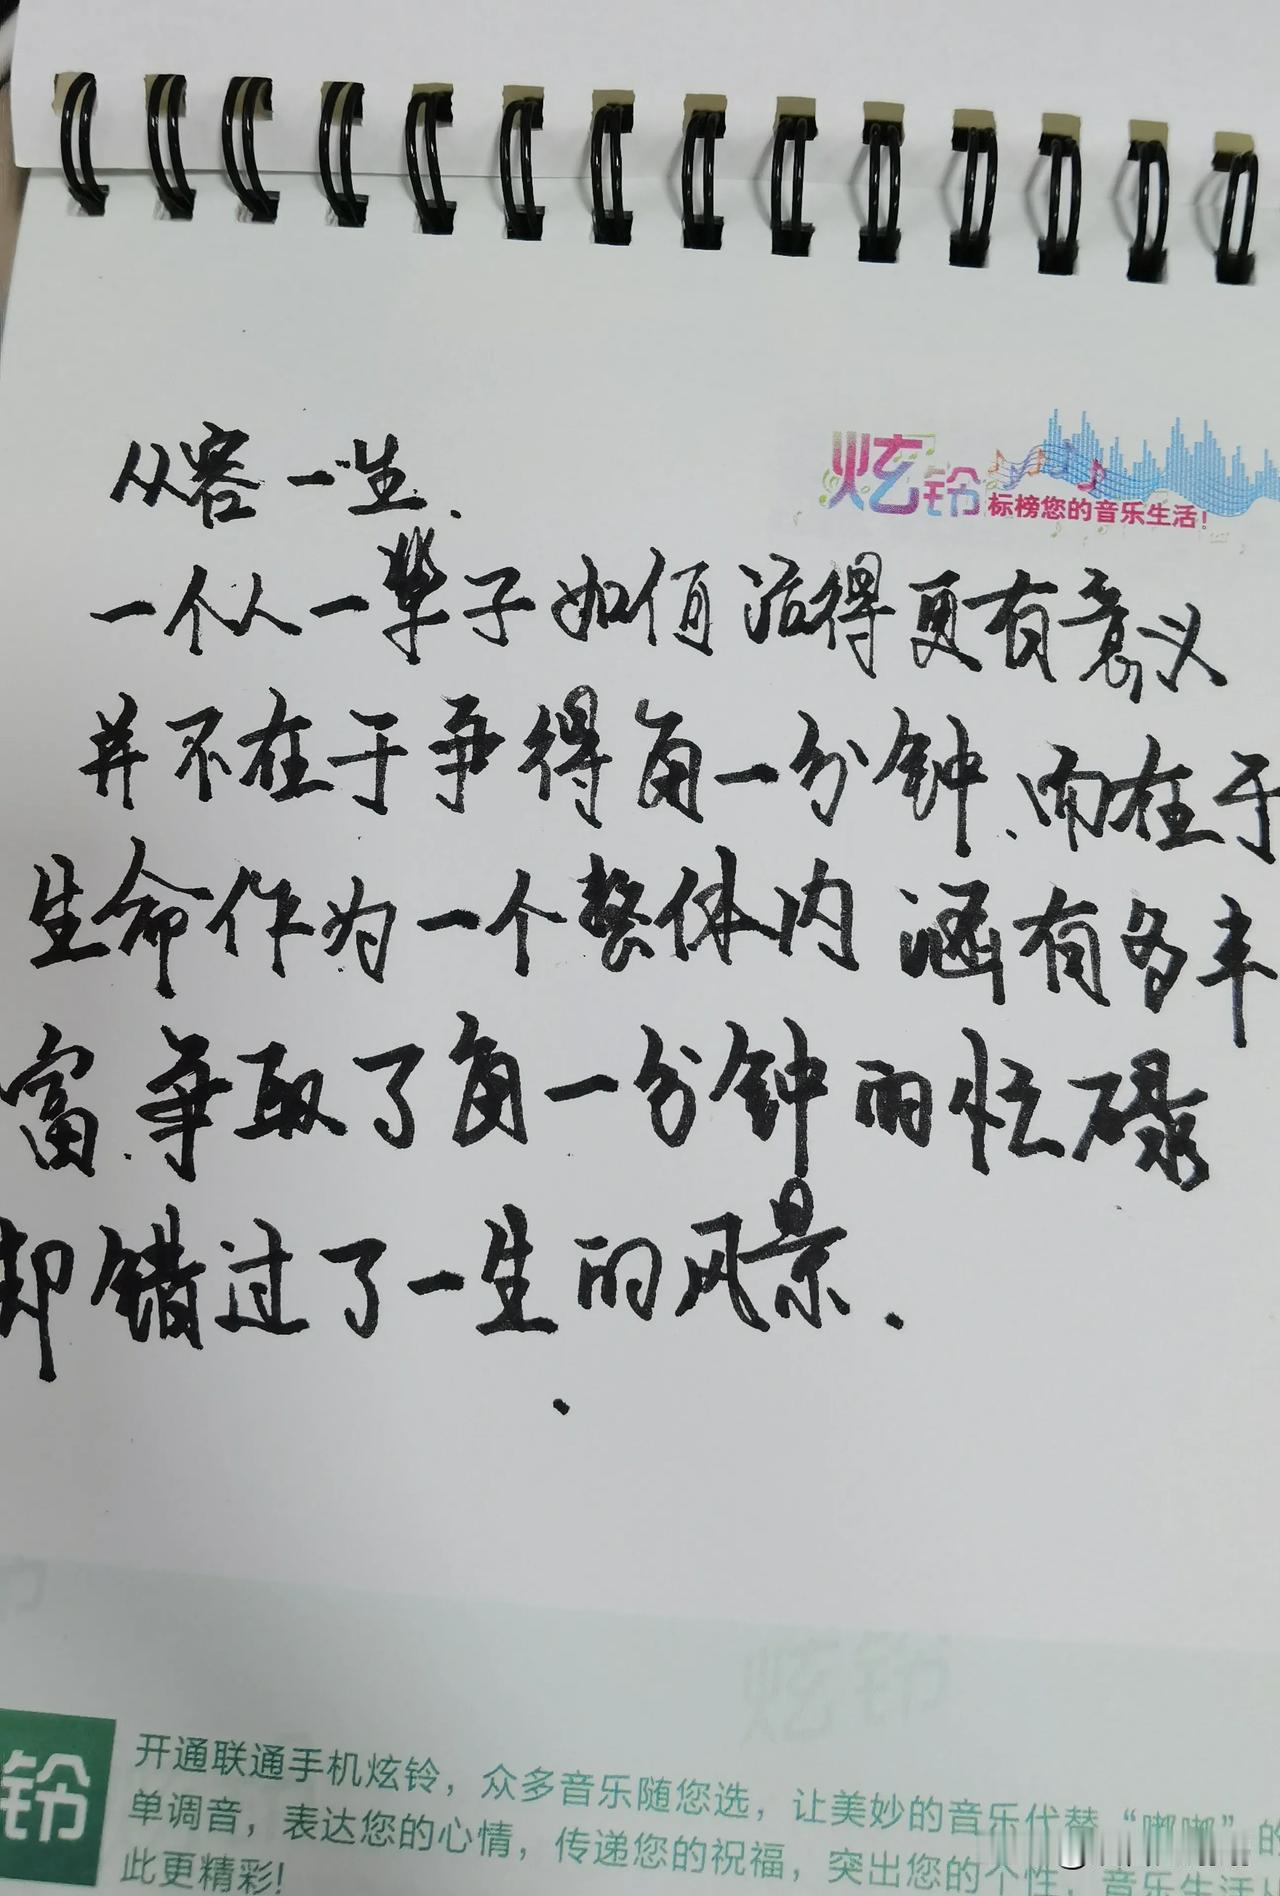 炫铃 标榜您的音乐生活!
从容一生.
一个人一辈子如何活得更有意义
并不在于争得每一分钟.而在于
生命作为一个整体内涵有多丰
富.争取了每一分钟的忙碌
却错过了一生的风景.
炫铃
铃
开通联通手机炫铃，众多音乐随您选，让美妙的音乐代替“嘟嘟”的
单调音，表达您的心情，传递您的祝福，突出您的个性，音乐生活从
此更精彩!